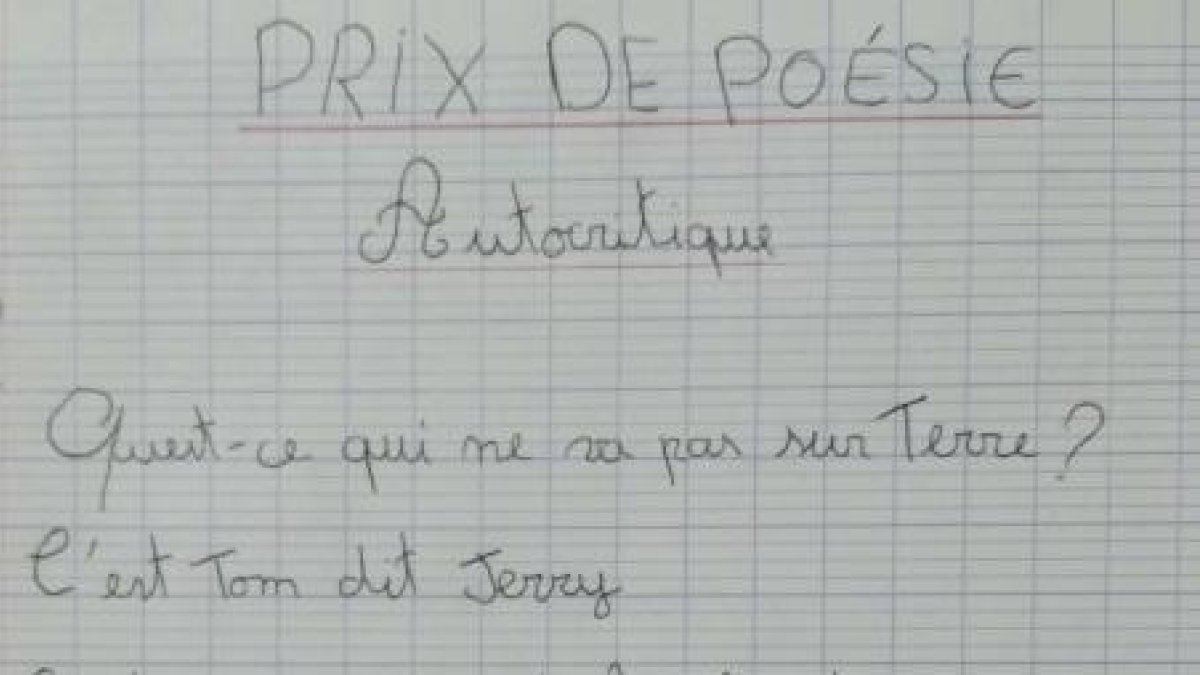 PRiX DE POÉSiE
Autocritique
Qu'est-ce qui ne va pas sur Terre ?
C'est Tom dit Jerry